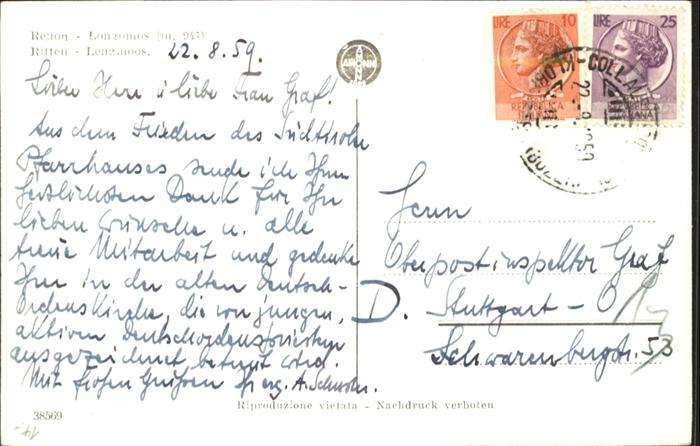 Renon - Lonzomos (m. 941)
Ritten - Lengmoos.
22.8.59.
Lieber Herr u. liebe Frau Graf!
Aus dem Frieden des Südtiroler
Pfarrhauses sende ich Ihnen
herzlichsten Dank für Ihr
lieben Wünsche u. alle
treue Mitarbeit und gedenke
Ihrer in der alten Deutsch-
ordenskirche, die von jungen,
aktiven Deutschordenspriestern
ausgezeichnet betreut wird.
Mit frohen Grüßen A.
LIRE 10
REPUBBLICA ITALIANA
LIRE 25
REPUBBLICA ITALIANA
COLLALBO
Herrn
Oberpostinspektor Graf
D. Stuttgart - O
Schwarenbergstr. 53
Riproduzione vietata - Nachdruck verboten
38569